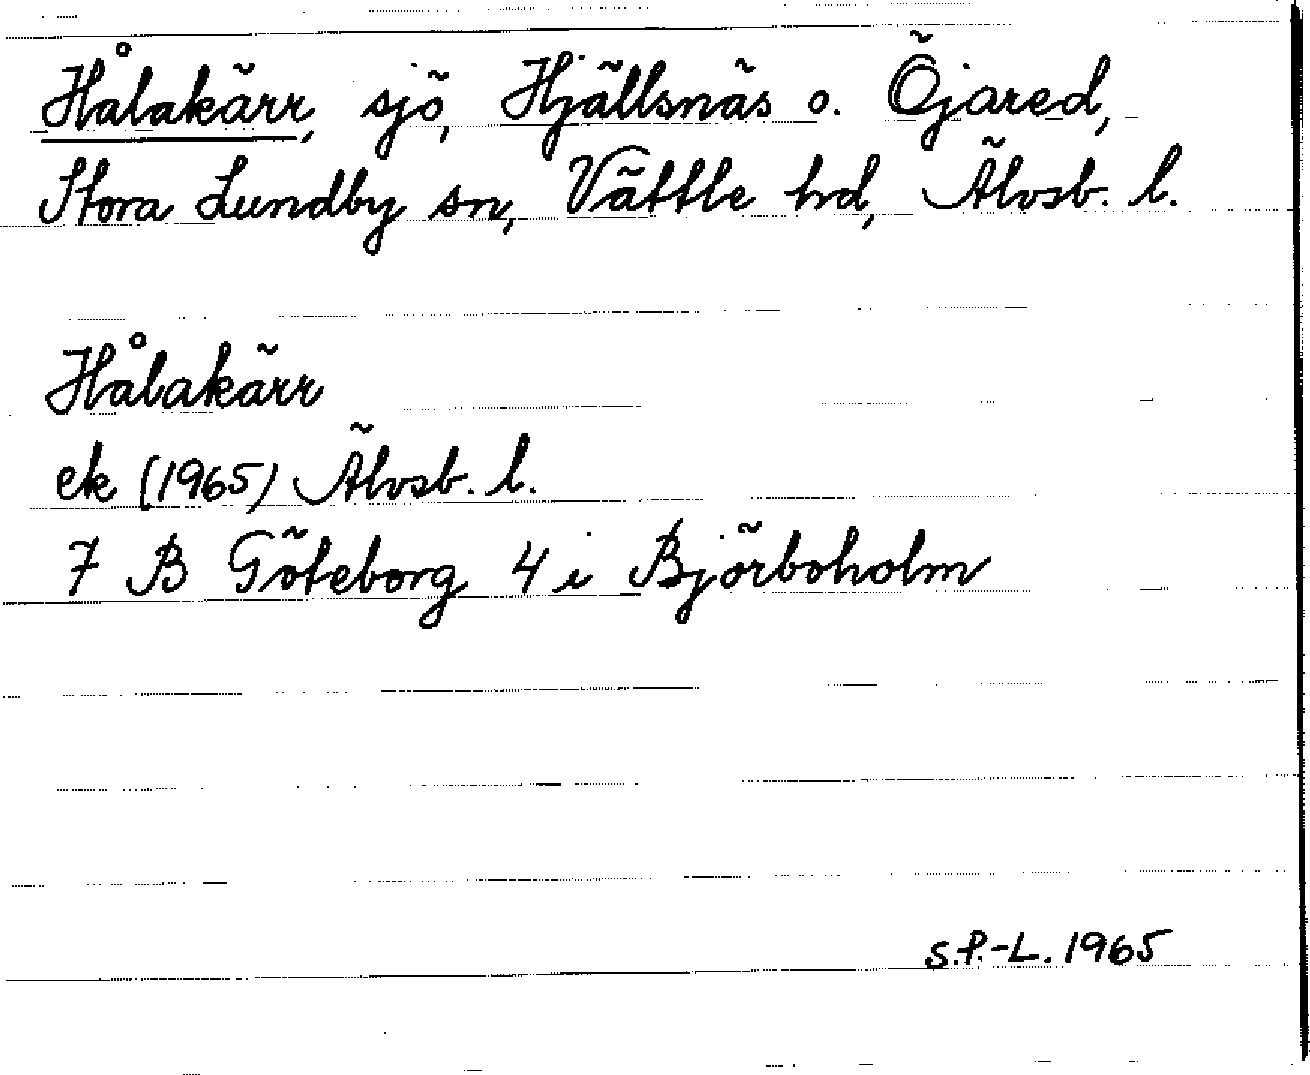 Hålakärr, sjö, Hjällsnäs o. Öjared,
Stora Lundby sn, Vättle hd, Älvsb. l.
Hålakärr
ek (1965) Älvsb. l.
7 B Göteborg 4 i Björboholm
S.P.-L. 1965